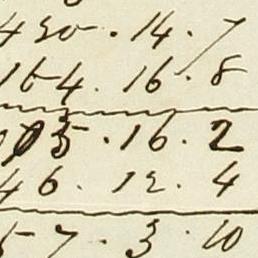 450 . 14 . 7
154 . 16 . 8
03 . 16 . 2
46 . 12 . 4
57 . 3 . 10